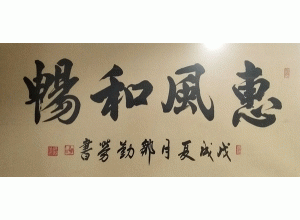 惠風和暢
戊戌夏月鄒勤勞書